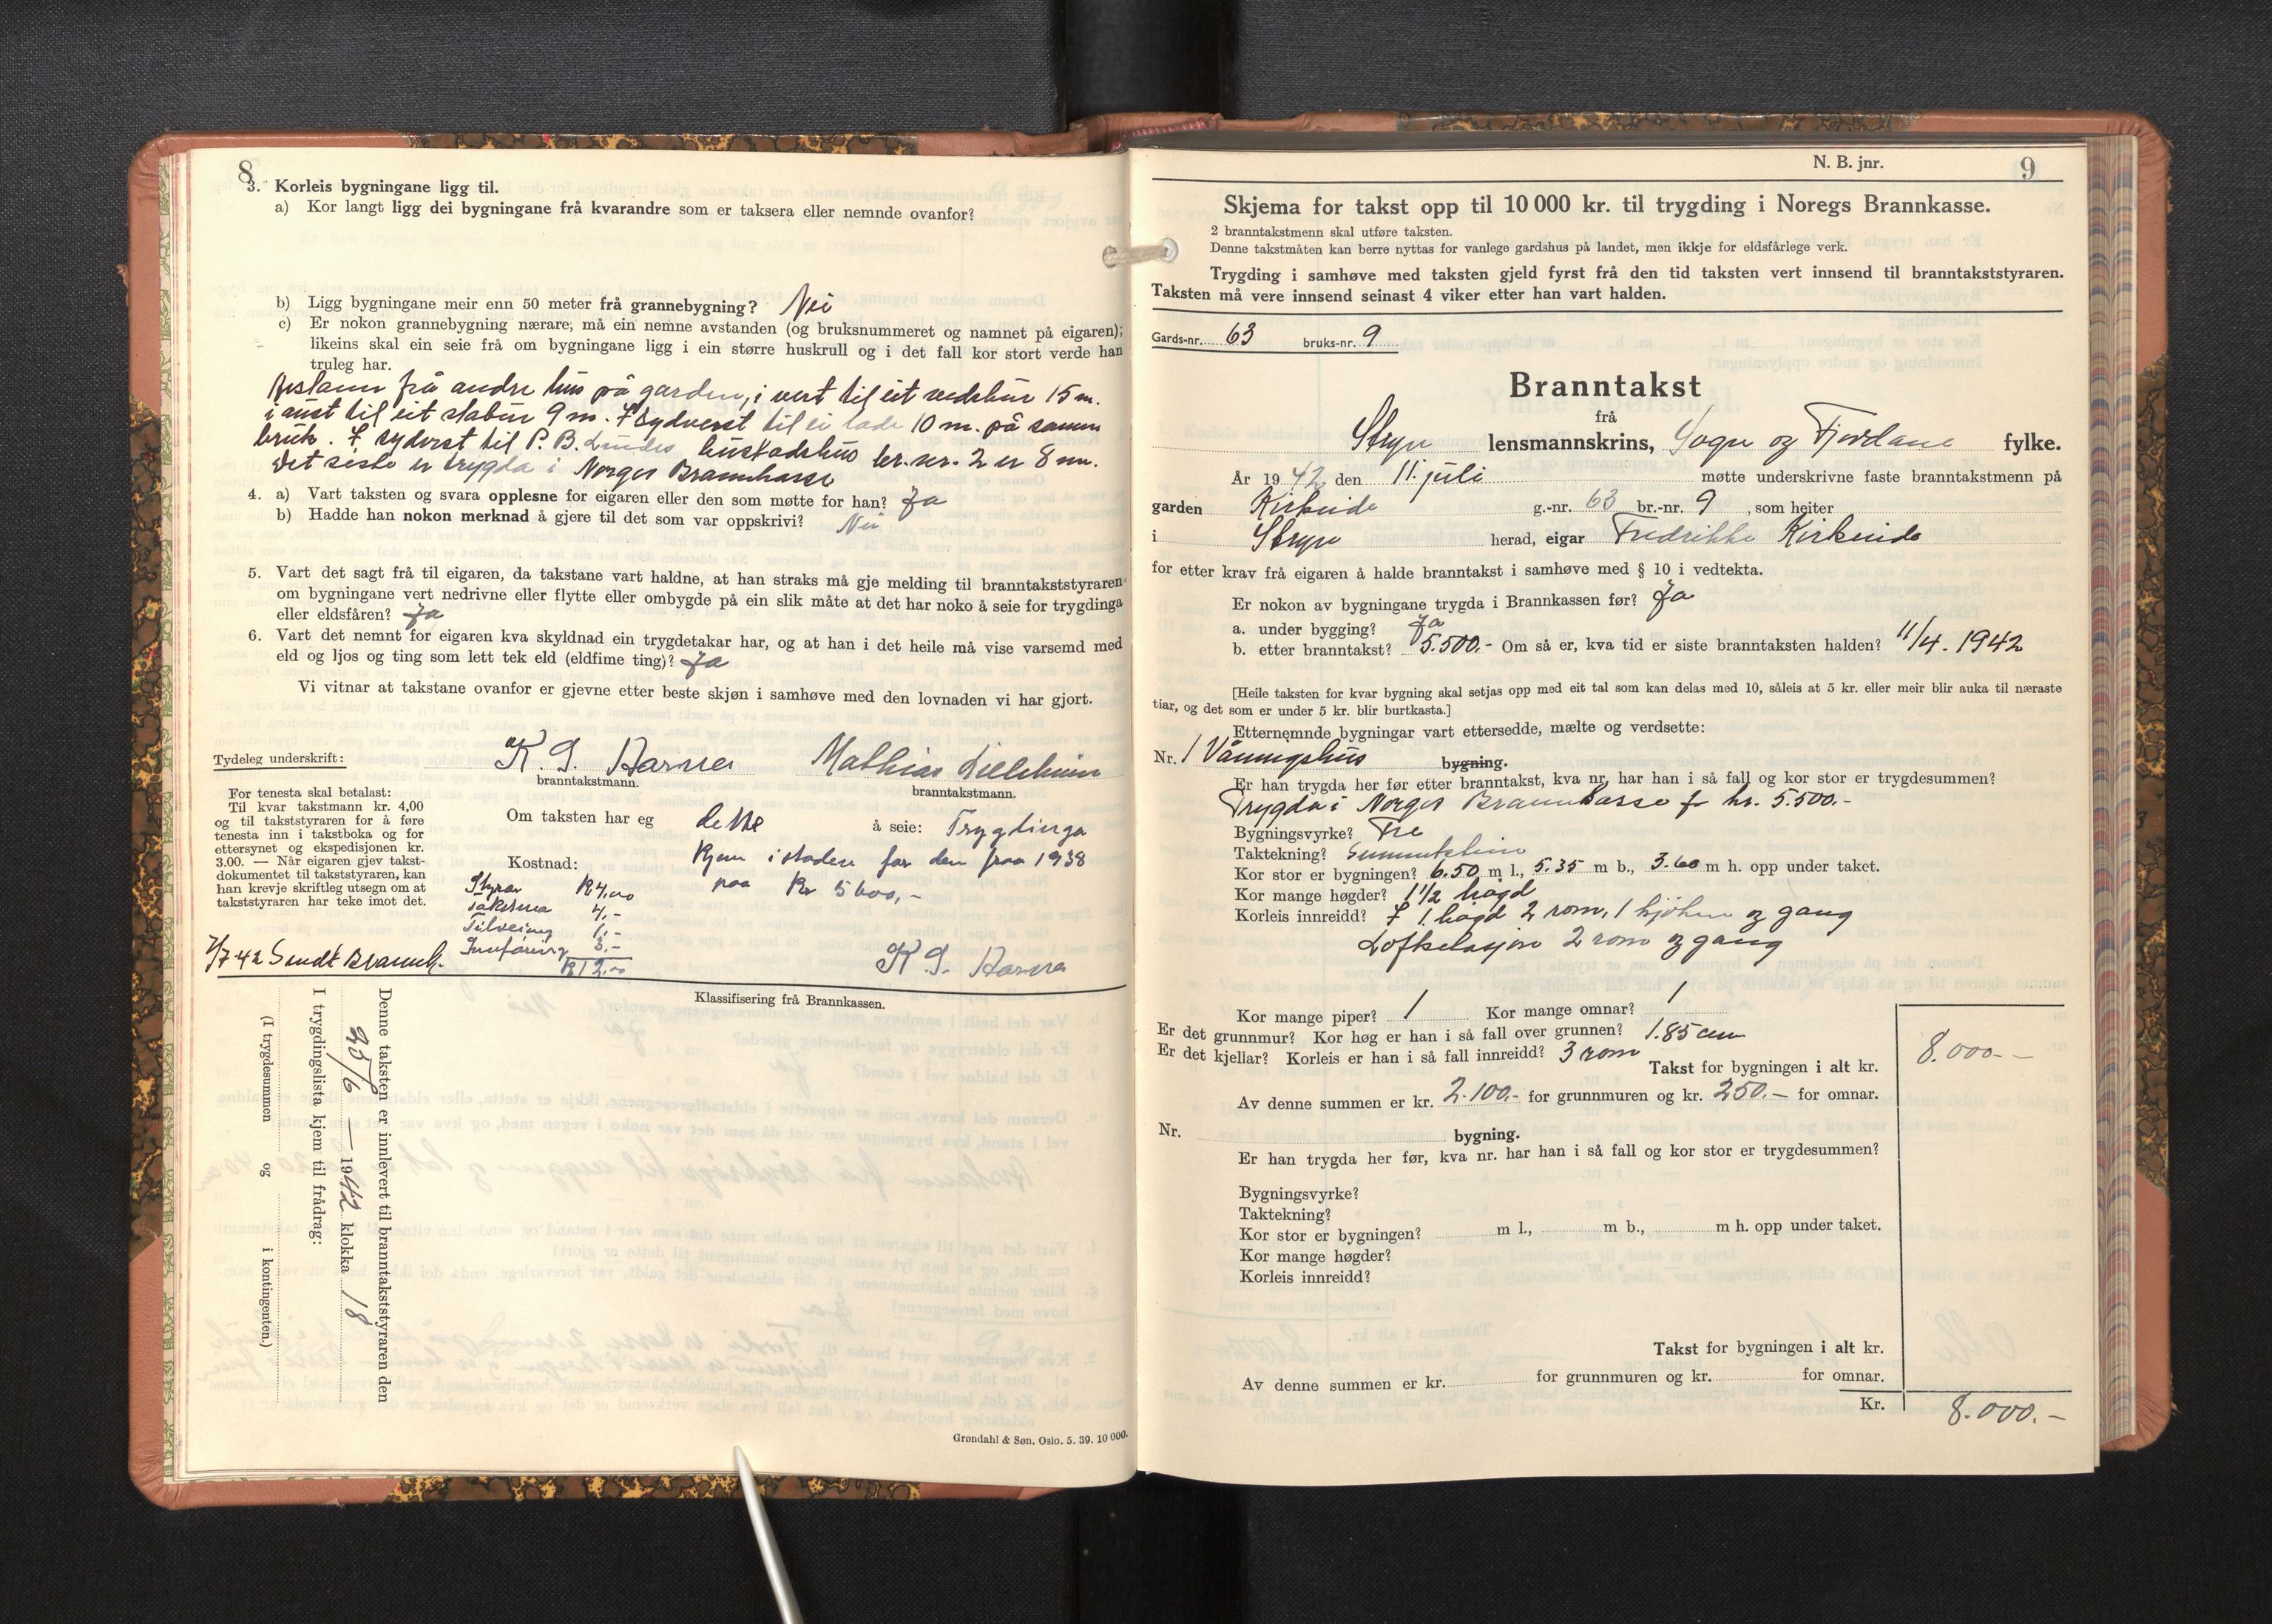 8
3. Korleis bygningane ligg til.
a) Kor langt ligg dei bygningane frå kvarandre som er taksera eller nemnde ovanfor?
b) Ligg bygningane meir enn 50 meter frå grannebygning? Nei
c) Er nokon grannebygning nærare, må ein nemne avstanden (og bruksnummeret og namnet på eigaren);
likeins skal ein seie frå om bygningane ligg i ein større huskrull og i det fall kor stort verde han
truleg har.
Avstann frå andre hus på garden, i vest til eit vedshus 15 m.
i aust til eit stabur 9 m. I Sydvest til ei lade 10 m. på samm
bruk. I sydvest til P. B. Lundes bustadshus br.nr. 2 er 8 m.
Det siste er trygda i Norges Brannkasse
4. a) Vart taksten og svara opplesne for eigaren eller den som møtte for han? Ja
b) Hadde han nokon merknad å gjere til det som var oppskrivi? Nei
5. Vart det sagt frå til eigaren, da takstane vart haldne, at han straks må gje melding til branntakststyraren
om bygningane vert nedrivne eller flytte eller ombygde på ein slik måte at det har noko å seie for trygdinga
eller eldsfåren? Ja
6. Vart det nemnt for eigaren kva skyldnad ein trygdetakar har, og at han i det heile må vise varsemd med
eld og ljos og ting som lett tek eld (eldfime ting)? Ja
Vi vitnar at takstane ovanfor er gjevne etter beste skjøn i samhøve med den lovnaden vi har gjort.
Tydeleg underskrift: K. S. Mathias
branntakstmann. branntakstmann.
For tenesta skal betalast:
Til kvar takstmann kr. 4,00
og til takststyraren for å føre
tenesta inn i takstboka og for
ettersynet og ekspedisjonen kr.
3.00. — Når eigaren gjev takst-
dokumentet til takststyraren, kan
han krevje skriftleg utsegn om at
takststyraren har teke imot det.
Om taksten har eg dette å seie: Trygdinga
kjem istaden for den fraa 1938
paa Kr 5600,-
Kostnad:
Styrar K 4,00
4,-
1,-
Innføring 3,-
K 12,-
7/7 42 Sendt Brannk.
K. S.
Klassifisering frå Brannkassen.
Denne taksten er innlevert til branntakststyraren den
25/6 — 1942 klokka 18
I trygdingslista kjem til frådrag:
(I trygdesummen og i kontingenten.)
Grøndahl & Søn. Oslo. 5. 39. 10 000.
N. B. jnr. 9
Skjema for takst opp til 10 000 kr. til trygding i Noregs Brannkasse.
2 branntakstmenn skal utføre taksten.
Denne takstmåten kan berre nyttas for vanlege gardshus på landet, men ikkje for eldsfårlege verk.
Trygding i samhøve med taksten gjeld fyrst frå den tid taksten vert innsend til branntakststyraren.
Taksten må vere innsend seinast 4 viker etter han vart halden.
Gards-nr. 63 bruks-nr. 9
Branntakst
frå
Stryn lensmannskrins, Sogn og Fjordane fylke.
År 1942 den 11. juli møtte underskrivne faste branntakstmenn på
garden Kirkeide g.-nr. 63 br.-nr. 9, som heiter
i Stryn herad, eigar Fredrikke Kirkeide
for etter krav frå eigaren å halde branntakst i samhøve med § 10 i vedtekta.
Er nokon av bygningane trygda i Brannkassen før? Ja
a. under bygging? Ja
b. etter branntakst? 5.500.- Om så er, kva tid er siste branntaksten halden? 11/4. 1942
[Heile taksten for kvar bygning skal setjas opp med eit tal som kan delas med 10, såleis at 5 kr. eller meir blir auka til næraste
tiar, og det som er under 5 kr. blir burtkasta.]
Etternemnde bygningar vart ettersedde, mælte og verdsette:
Nr. 1 Våningshus bygning.
Er han trygda her før etter branntakst, kva nr. har han i så fall og kor stor er trygdesummen?
Trygda i Norges Brannkasse f kr. 5.500.-
Bygningsvyrke? Tre
Taktekning?
Kor stor er bygningen? 6.50 m l., 5.35 m b., 3.60 m h. opp under taket.
Kor mange høgder? 1 1/2 høgd
Korleis innreidd? I 1. høgd 2 rom, 1 kjøken og gang
Loftsetasjen 2 rom og gang
Kor mange piper? 1 Kor mange omnar? 1
Er det grunnmur? Kor høg er han i så fall over grunnen? 1.85 cm
Er det kjellar? Korleis er han i så fall innreidd? 3 rom
Takst for bygningen i alt kr. 8.000.-
Av denne summen er kr. 2.100.- for grunnmuren og kr. 250.- for omnar.
Nr. bygning.
Er han trygda her før, kva nr. har han i så fall og kor stor er trygdesummen?
Bygningsvyrke?
Taktekning?
Kor stor er bygningen? m l., m b., m h. opp under taket.
Kor mange høgder?
Korleis innreidd?
Takst for bygningen i alt kr.
Av denne summen er kr. for grunnmuren og kr. for omnar.
Kr. 8.000.-